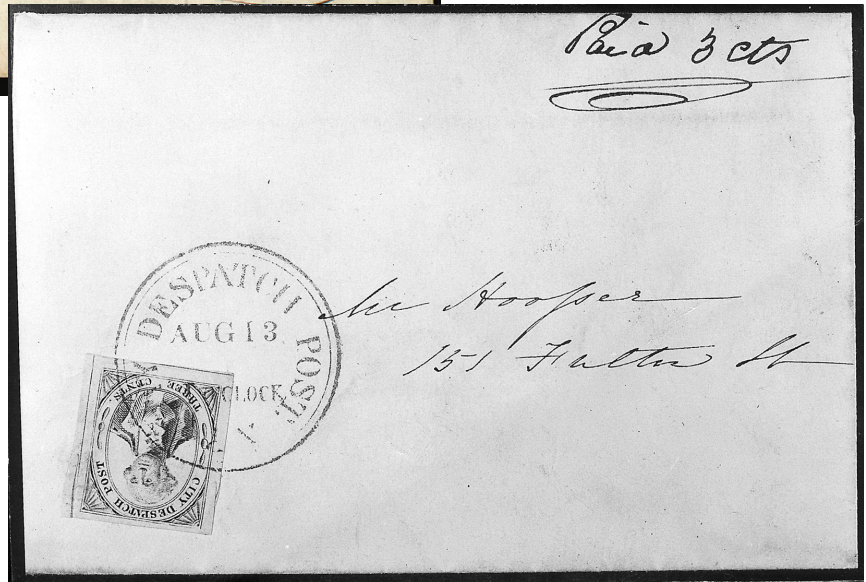 Paid 3 cts
DESPATCH POST.
AUG 13
O'CLOCK
Mr Hoofser
151 Fulton St
CITY DESPATCH POST
THREE CENTS.